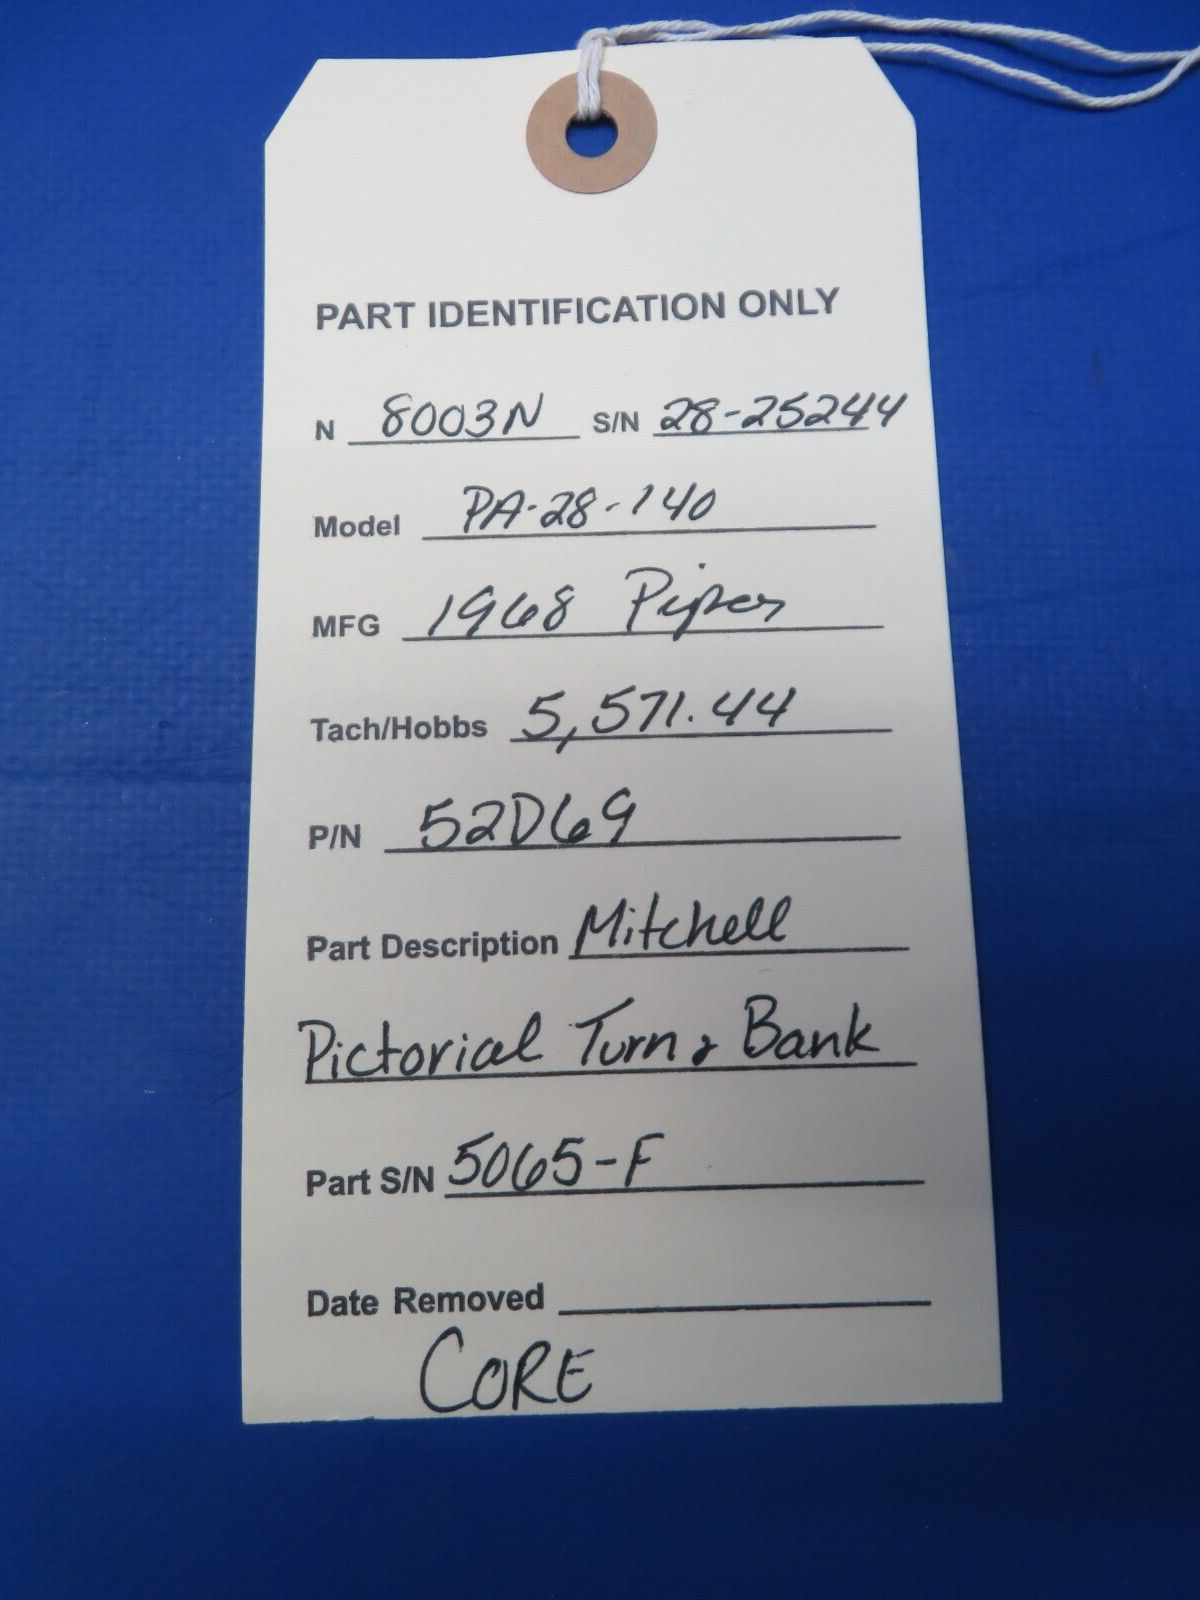 PART IDENTIFICATION ONLY
N 8003N S/N 28-25244
Model PA-28-140
MFG 1968 Piper
Tach/Hobbs 5,571.44
P/N 52D69
Part Description Mitchell
Pictorial Turn & Bank
Part S/N 5065-F
Date Removed
CORE